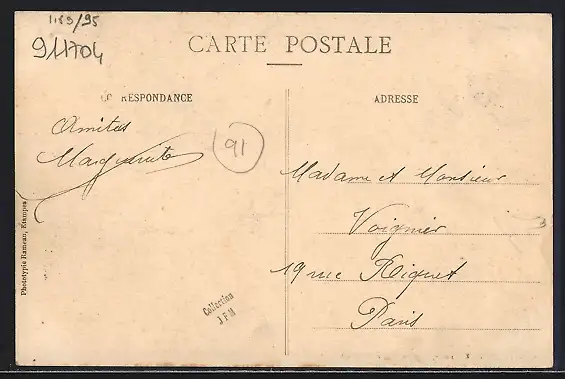 1183/95
911704
CARTE POSTALE
CORRESPONDANCE
ADRESSE
Amitiés
Marguerite
91
Madame et Monsieur
Voignier
19 rue Riquet
Paris
Phototypie Rameau, Etampes
Collection
J F M